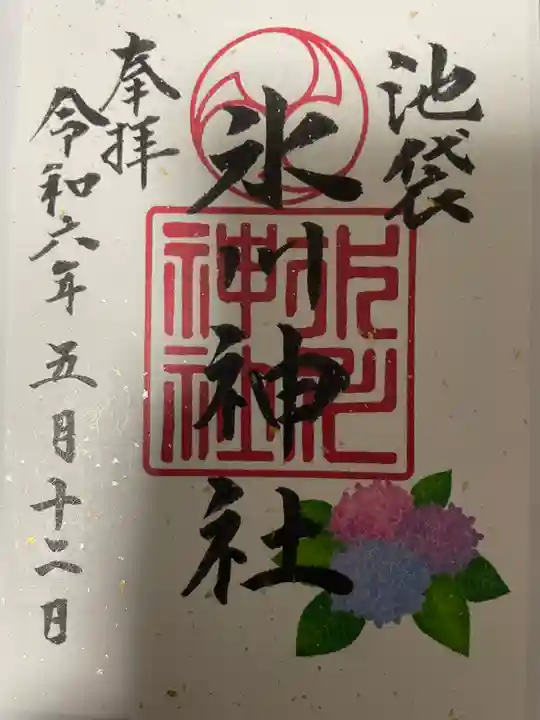 池袋
氷川神社
氷川
神社
奉拝
令和六年五月十二日